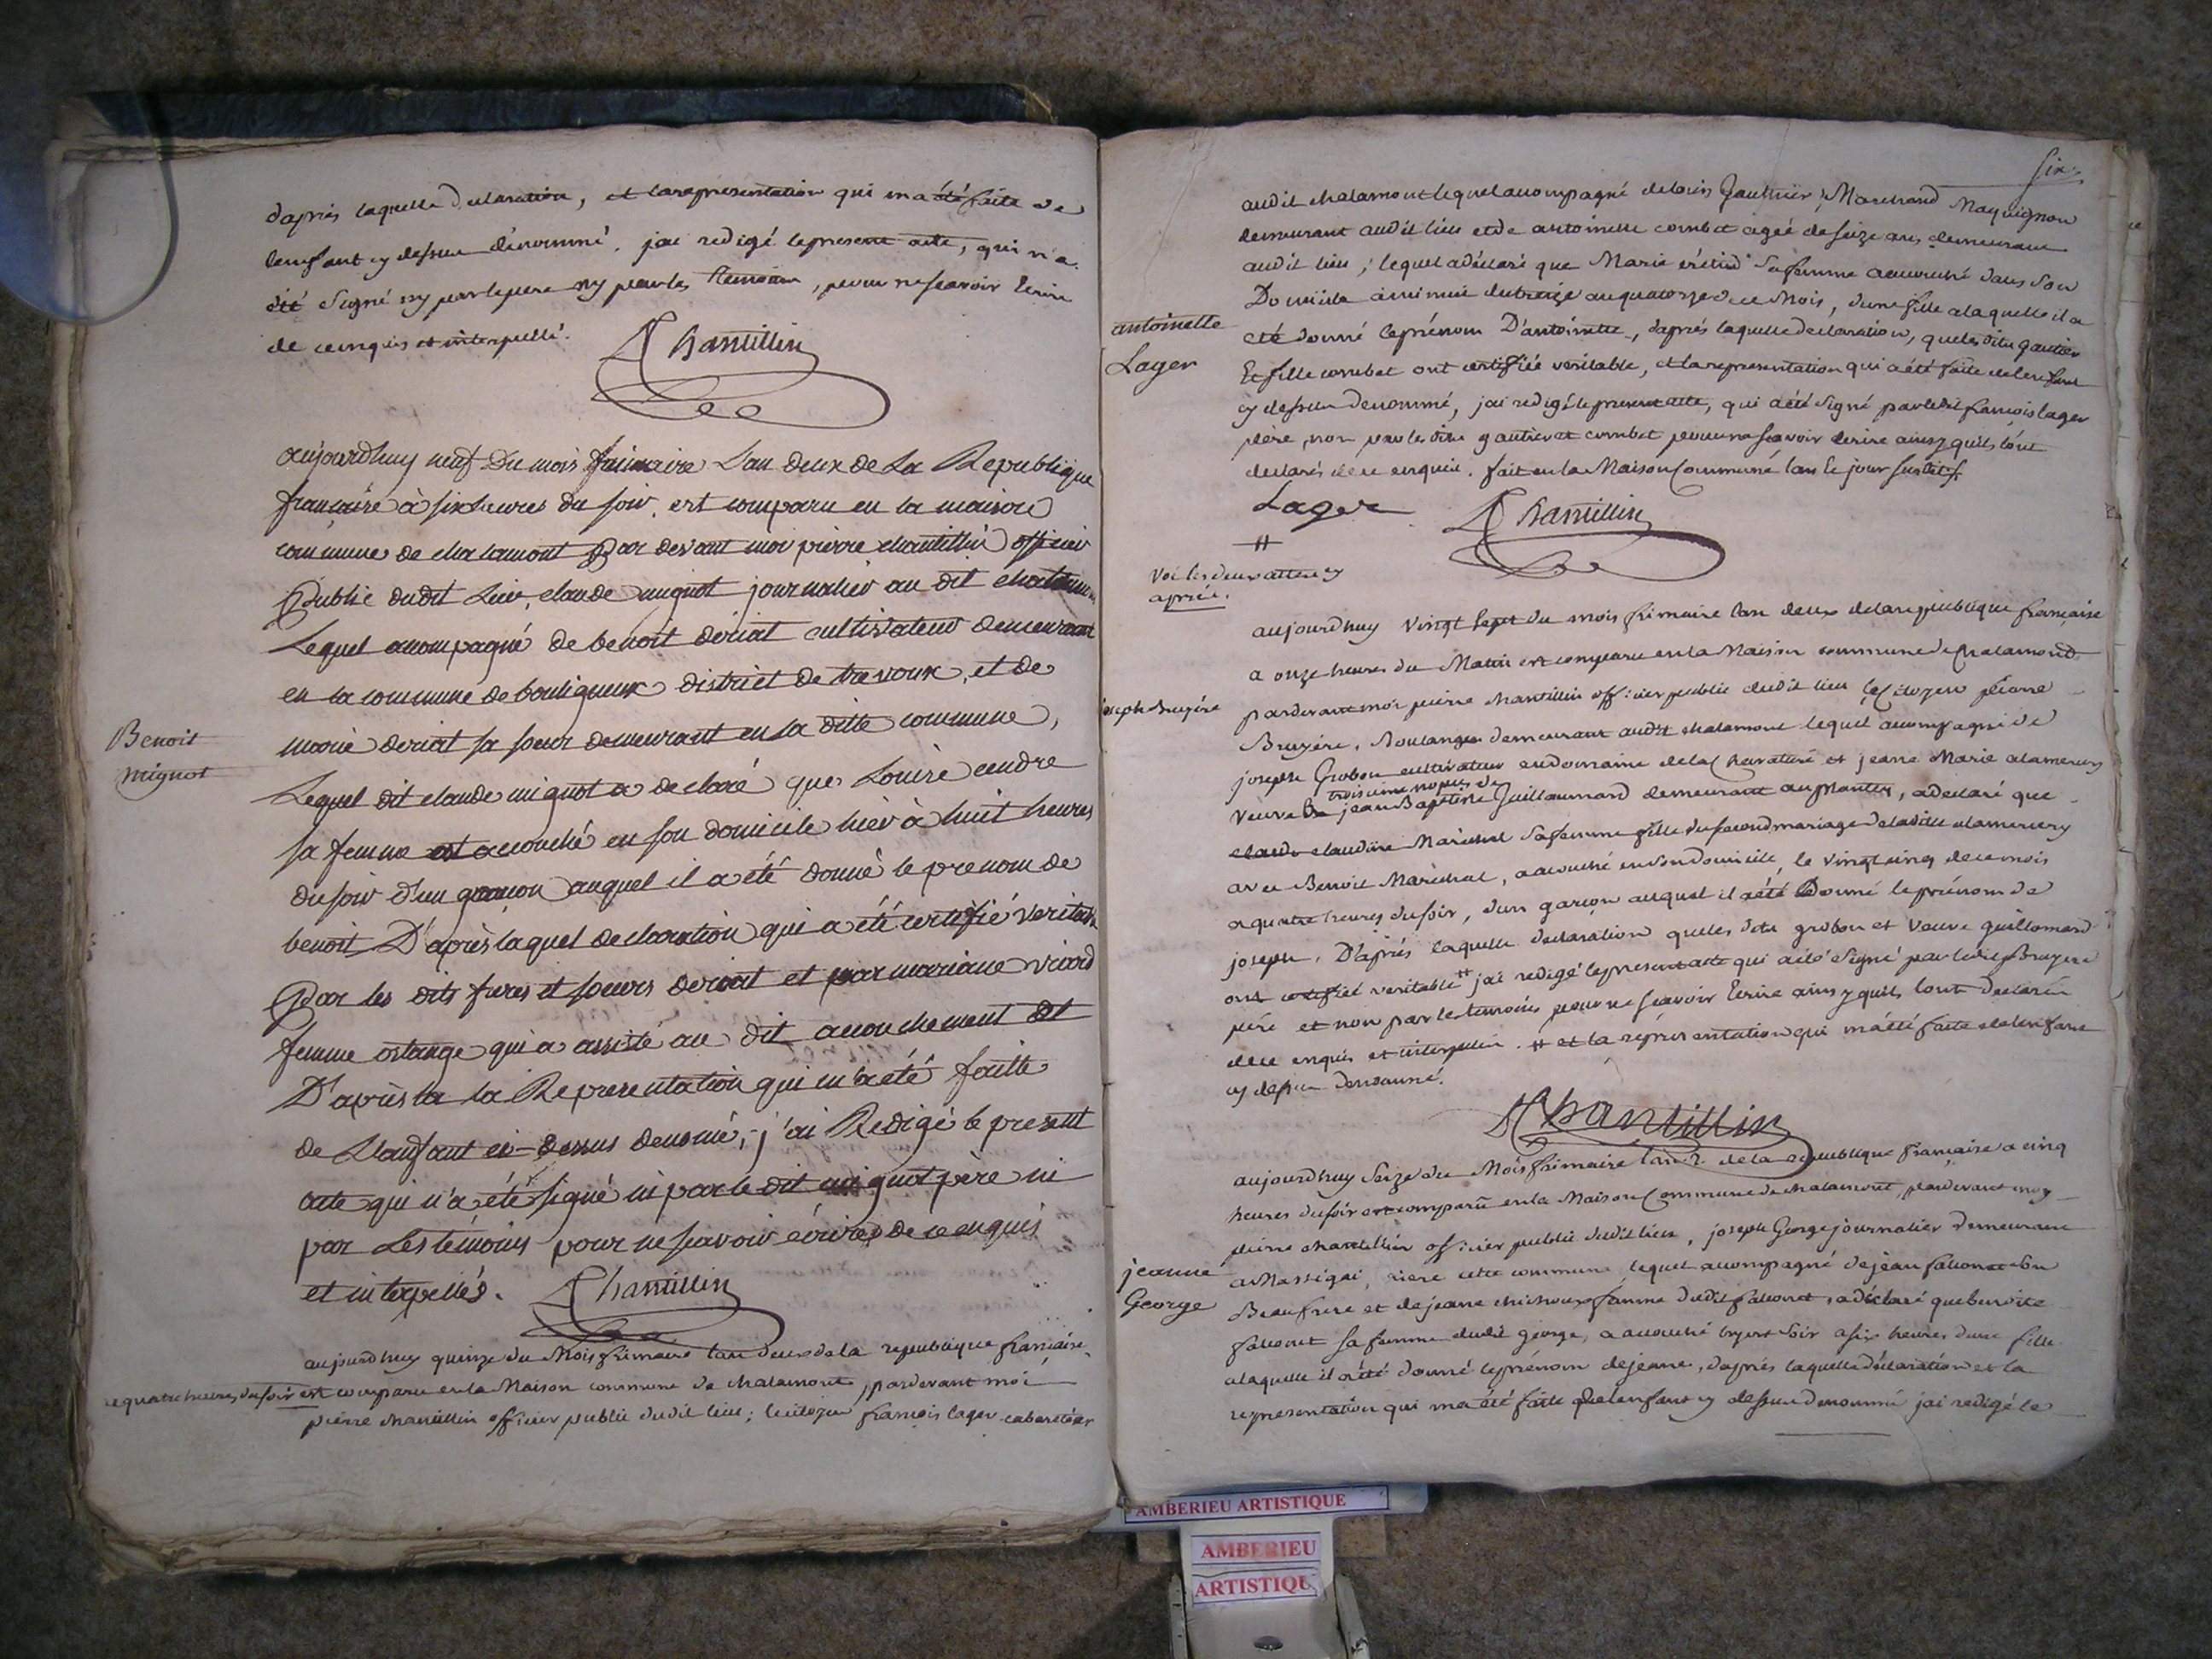 d'apres laquelle declaration, et la representation qui m'a été faite de
lenfant cy dessus dénommé. jai redigé le present acte, qui n'a
été signé ny par le pere ny par les temoins, pour ne scavoir Ecrire
de ce enquis et interpellé.
Chantillin
aujourdhuy neuf Du mois frimaire L'an deux de La Republique
francaise à six heures du soir est comparu en la maison
commune de chalamont Par devant moi pierre chantillin officier
Public dudit Lieu, claude mignot journalier au dit chalamont
Lequel accompagné de benoit deriat cultivateur demeurant
en la commune de bouligneux district de trevoux, et de
marie deriat sa soeur demeurant en la ditte commune,
Benoit
mignot
Lequel dit claude mignot a declaré que Louise cendre
sa femme est accouché en son domicile hier à huit heures
du soir d'un garcon auquel il a été donné le prenom de
benoit D'après laquel declaration qui a été certifié veritable
Par les dits freres et soeurs deriat et par mariane
femme qui a assisté au dit accouchement et
D'après la la Representation qui m'a été faitte
de L'enfant ci-dessus denomé, j'ai Redigé le present
acte qui n'a été signé ni par le dit mignot père ni
par Les témoins pour ne scavoir écrire de ce enquis
et interpellés. Chantillin
aujourdhuy quinze du Mois frimaire lan deux de la republique francaise
a quatre heures du soir est comparu en la Maison commune de chalamont, pardevant moi
pierre chantillin officier public dudit lieu; le citoyen francois lager cabaretier
six
audit chalamont lequel accompagné de louis Gauthier, Marchand Maquignon
demeurant audit lieu et de antoinette combet agée de seize ans demeurant
audit lieu; lequel a déclaré que Marie sa femme accouché dans son
Domicile a minuit du treize au quatorze de ce Mois, dune fille a laquelle il a
antoinette
Lager
été donné le prénom D'antoinette, d'après laquelle declaration, que les dits gautier
Et fille combet ont certifiée véritable, et la representation qui a été faite de lenfant
cy dessus denommé, jai redigé le present acte, qui a été signé par ledit francois lager
père, non par les dits gautier et combet pour ne scavoir ecrire ainsy quils l'ont
declarés de ce enquis. fait en la Maison Commune lan Et jour susdits.
Lager Chantillin
#
Voi les deux actes cy
après.
aujourdhuy vingt sept du mois frimaire lan deux de la republique francaise
a onze heures du Matin est comparu en la Maison commune de chalamont
joseph Bruyére
pardevant moi pierre chantillin officier public dudit lieu le citoyen pierre
Bruyére, Boulanger demeurant audit chalamont lequel accompagné de
joseph Grobon cultivateur au domaine de la et jeanne Marie alamercery
troisieme nopces de
veuve De jean Baptiste Guillaumard demeurant au, a declaré que
claude claudine Maréchal sa femme fille du second mariage de la dite alamercery
avec Benoit Maréchal, a accouché en son domicile, le vingt cinq de ce mois
a quatre heures du soir, dun garçon auquel il a été Donné le prénom de
joseph. D'après laquelle declaration que les dits grobon et veuve guillomard
ont certifié veritable # jai redigé le present acte qui a été signé par ledit Bruyere
père et non par les temoins pour ne scavoir Ecrire ainsy quils l'ont declaré
de ce enquis et interpellés. # et la représentation qui m'a été faite de lenfant
cy dessus denommé.
Chantillin
aujourdhuy seize du Mois frimaire lan 2 de la republique francaise a cinq
heures du soir est comparu en la Maison Commune de chalamont, pardevant moy
pierre chantillin officier public dudit lieu, joseph George journalier demeurant
jeanne
George
a, riere cette commune, lequel accompagné de jean falconet son
Beaufrere et de jeanne femme dudit falconet, a déclaré que benoite
falconet sa femme dudit george, a accouché hyer soir a six heures dune fille
a laquelle il a été donné le prénom de jeanne, d'après laquelle déclaration et la
representation qui m'a été faite de lenfant cy dessus denommé jai redigé le
AMBERIEU ARTISTIQUE
AMBERIEU
ARTISTIQU